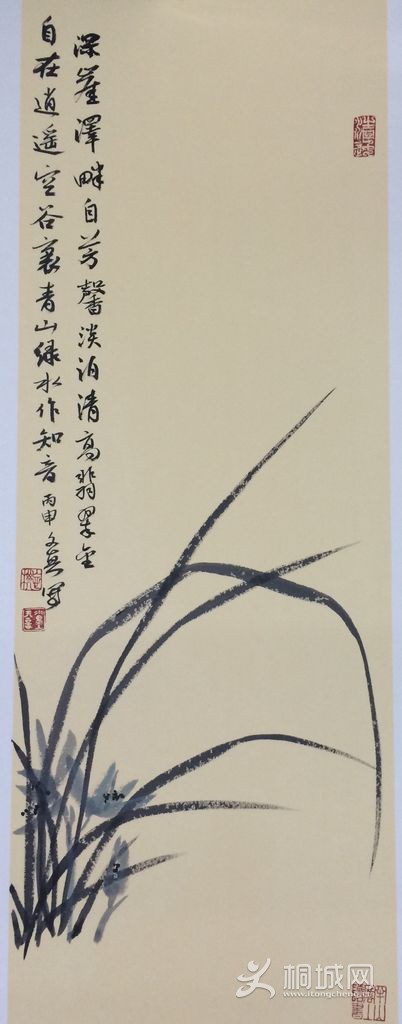 深崖澤畔自芳馨淡泊清高翡翠金
自在逍遥空谷裏青山绿水作知音丙申文英写
桐城网
www.itongcheng.c